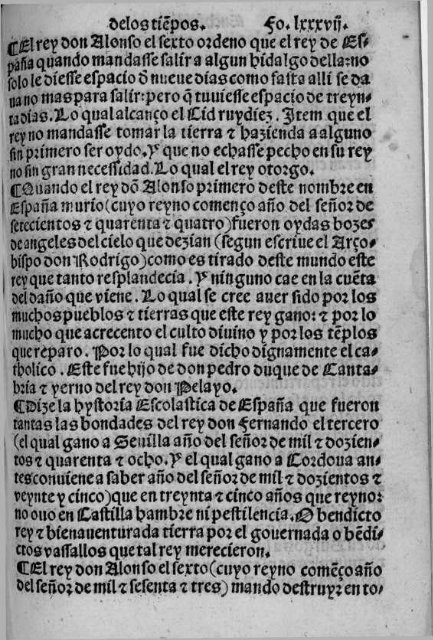 delos tiẽpos. Fo. lxxxvij.
¶El rey don Alonso el sexto ordeno que el rey de Es-
paña quando mandasse salir a algun hidalgo della: no
solo le diesse espacio d̃ nueue dias como fasta alli se da
ua no mas para salir: pero q̃ tuuiesse espacio de treyn-
ta dias. Lo qual alcanço el Cid ruydiez. Item que el
rey no mandasse tomar la tierra ⁊ hazienda a alguno
sin primero ser oydo. Y que no echasse pecho en su rey
no sin gran necessidad. Lo qual el rey otorgo.
¶Quando el rey dõ Alonso primero deste nombre en
España murio (cuyo reyno començo año del señor de
setecientos ⁊ quarenta ⁊ quatro) fueron oydas bozes
de angeles del cielo que dezian (segun escriue el Arço-
bispo don Rodrigo) como es tirado deste mundo este
rey que tanto resplandecia. Y ninguno cae en la cuẽta
del daño que viene. Lo qual se cree auer sido por los
muchos pueblos ⁊ tierras que este rey gano: ⁊ por lo
mucho que acrecento el culto diuino y por los tẽplos
que reparo. Por lo qual fue dicho dignamente el ca-
tholico. Este fue hijo de don pedro duque de Canta-
bria ⁊ yerno del rey don Pelayo.
¶Dize la hystoria Escolastica de España que fueron
tantas las bondades del rey don Fernando el tercero
(el qual gano a Seuilla año del señor de mil ⁊ dozien-
tos ⁊ quarenta ⁊ ocho. Y el qual gano a Cordoua an-
tes conuiene a saber año del señor de mil ⁊ dozientos ⁊
veynte y cinco) que en treynta ⁊ cinco años que reyno:
no ouo en Castilla hambre ni pestilencia. O bendicto
rey ⁊ bienauenturada tierra por el gouernada o bẽdi-
ctos vassallos que tal rey merecieron.
¶El rey don Alonso el sexto (cuyo reyno comẽço año
del señor de mil ⁊ sesenta ⁊ tres) mando destruyr en to-